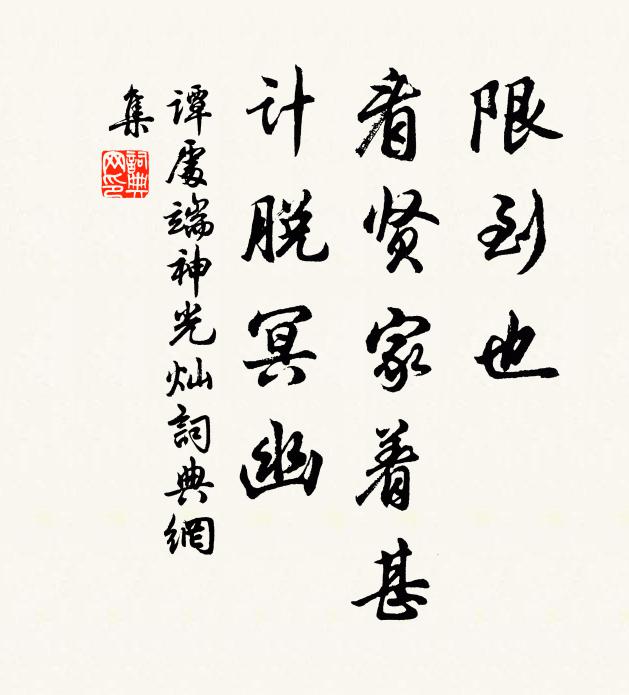 限到也
看贤家着甚
计脱冥幽
谭處端神光灿詞典網
集
詞典网印